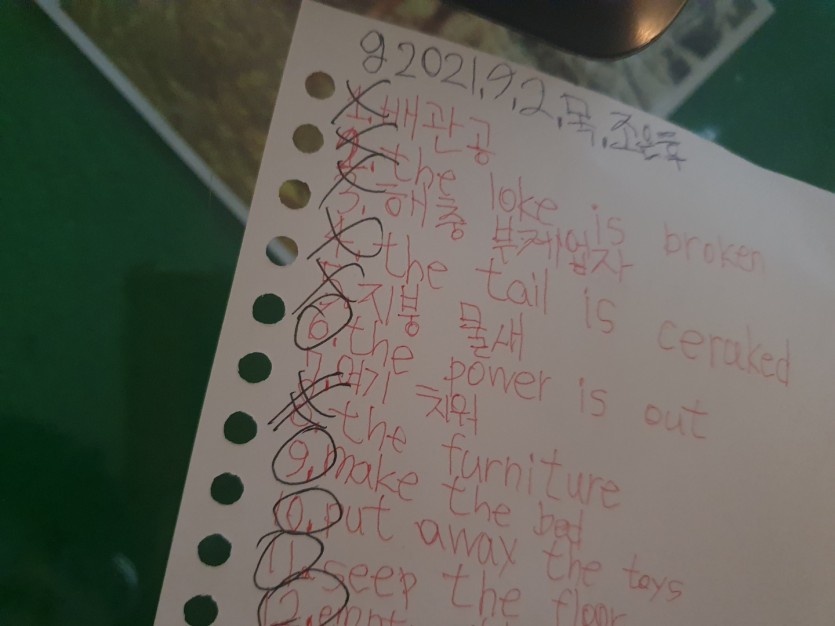 2021.9.2.목.조은
1.배관공
2.the loke is broken
3.해충 부제업자
4.the tail is ceraked
5.지붕 물새
6.the power is out
7.여기 치워
8.the furniture
9.make the bed
10.put away the toys
11.seep the floor
12.